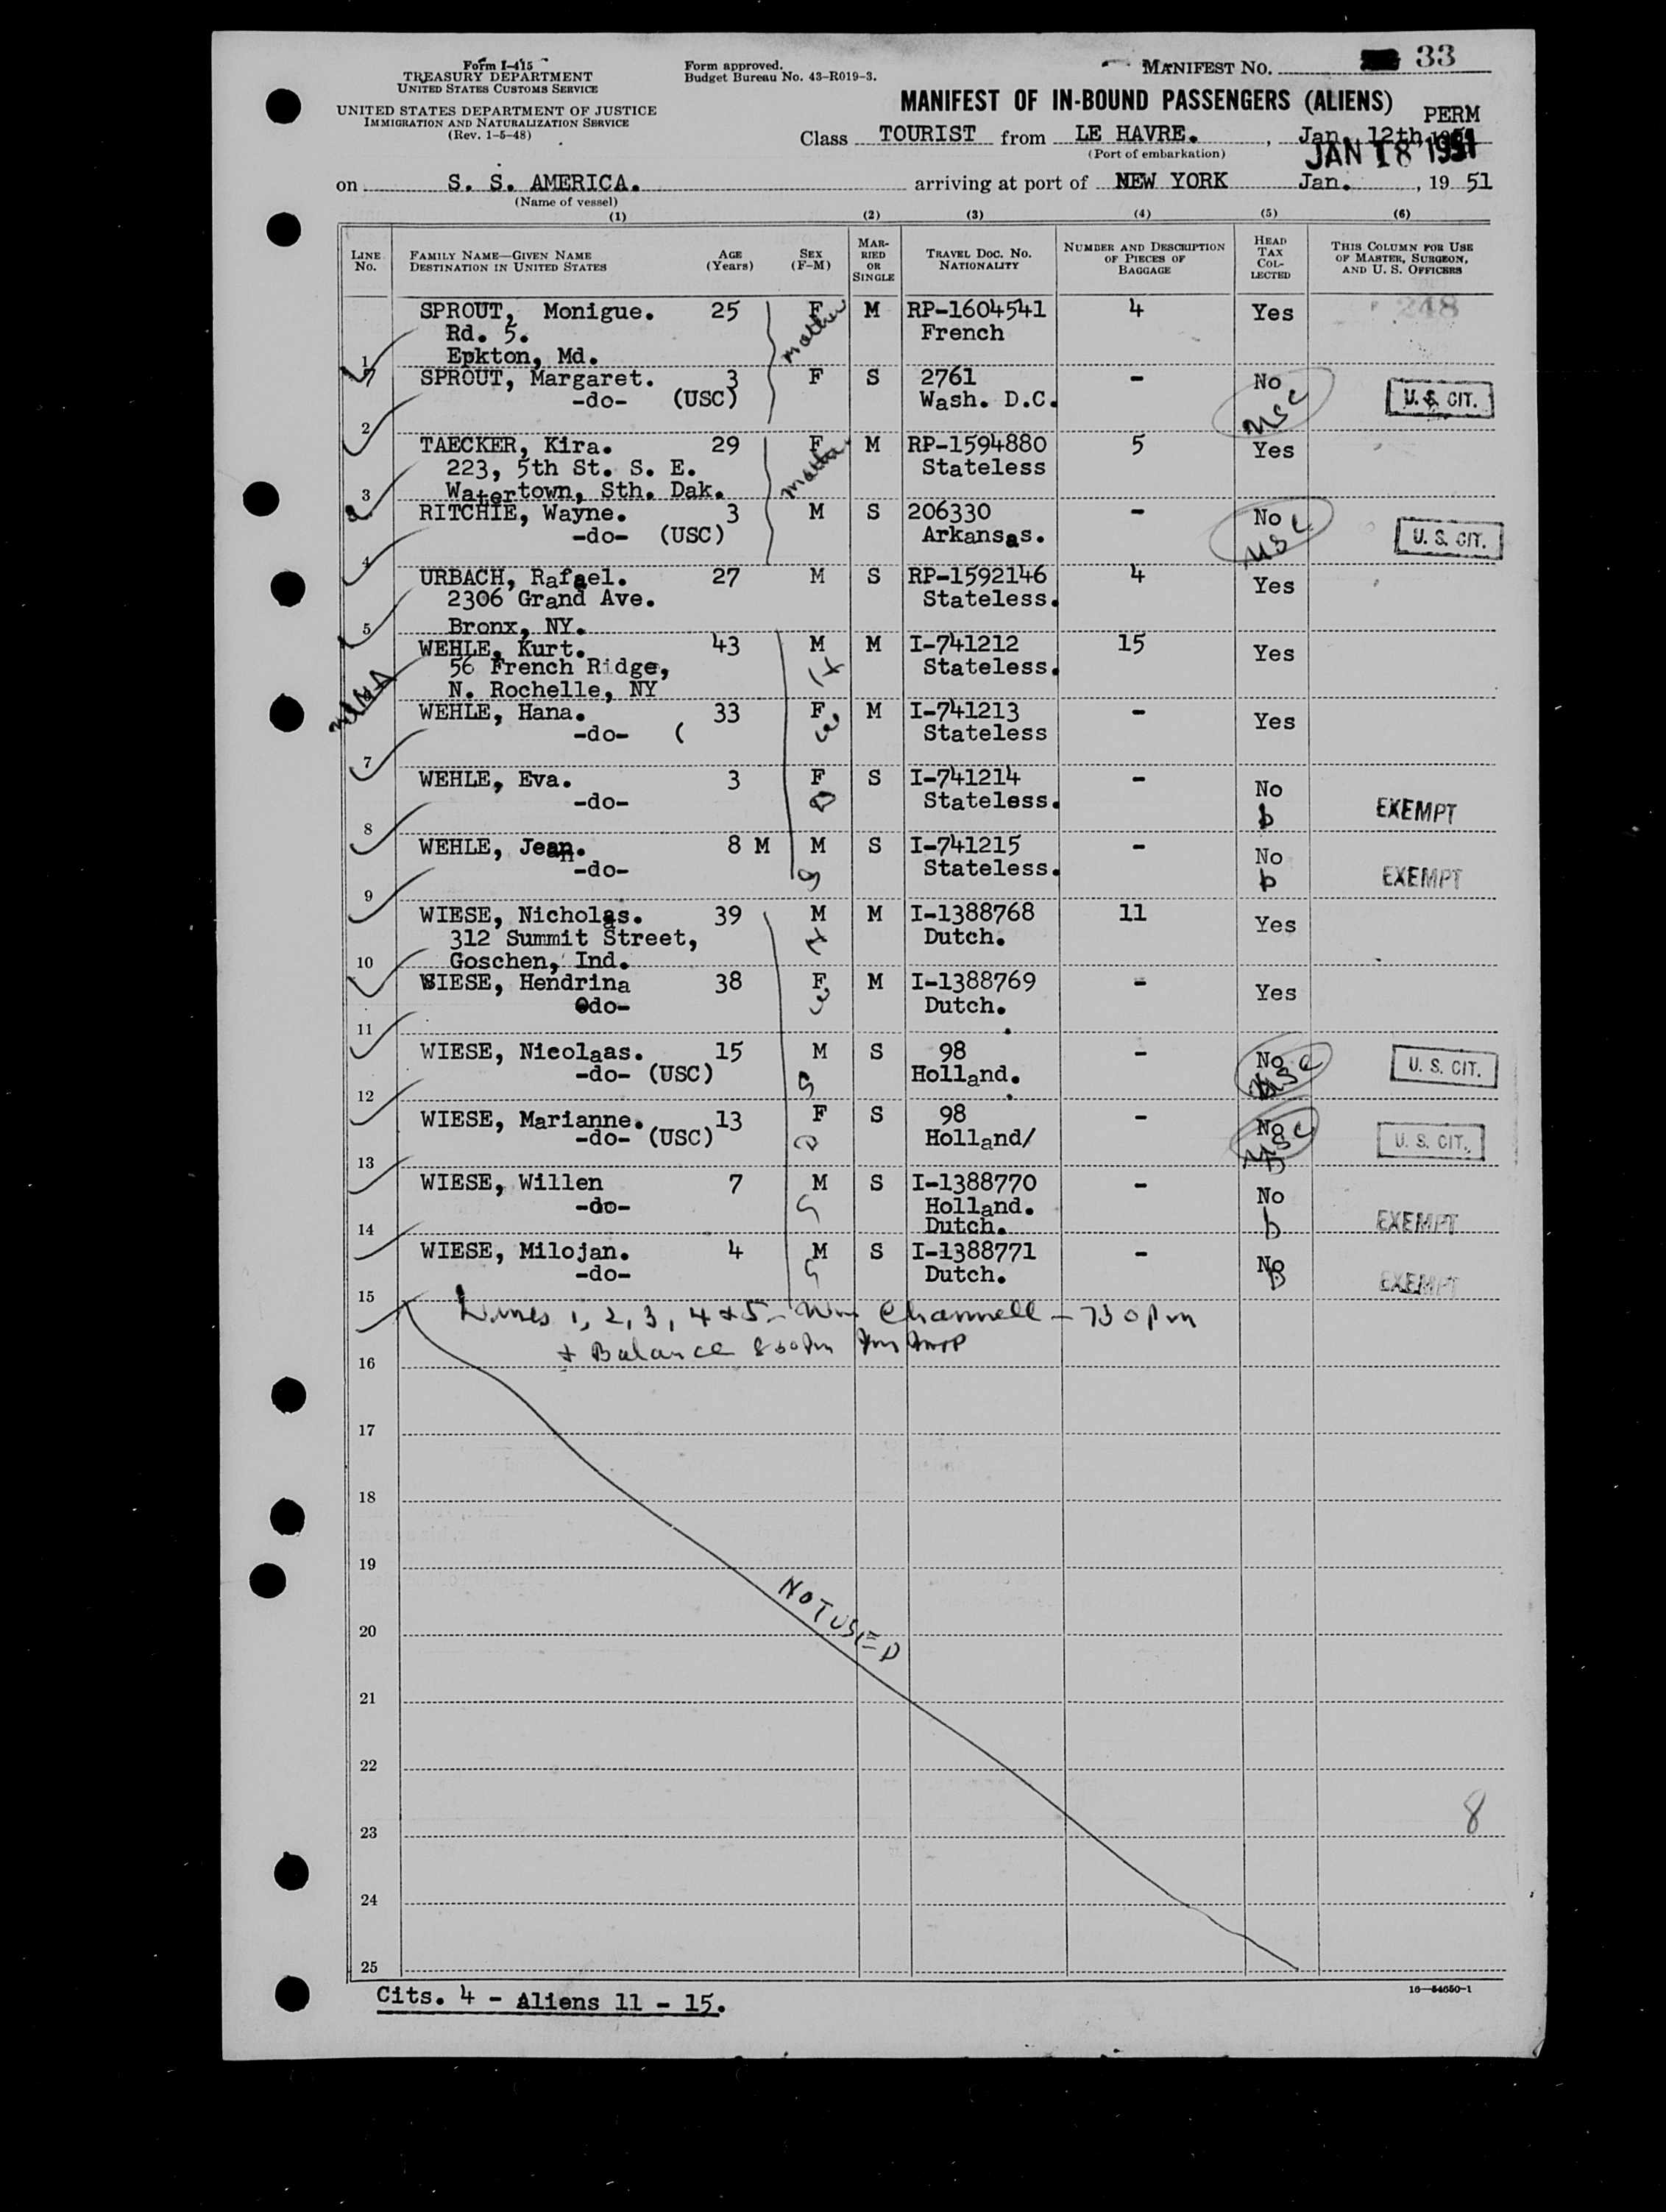 Form I-415
TREASURY DEPARTMENT
UNITED STATES CUSTOMS SERVICE
UNITED STATES DEPARTMENT OF JUSTICE
IMMIGRATION AND NATURALIZATION SERVICE
(Rev. 1-5-48)
Form approved.
Budget Bureau No. 43-R019-3.
MANIFEST NO. 33
MANIFEST OF IN-BOUND PASSENGERS (ALIENS)
PERM
Class TOURIST from LE HAVRE. , Jan. 12th, 1951
(Port of embarkation)
JAN 18 1951
on S. S. AMERICA. arriving at port of NEW YORK Jan. , 19 51
(Name of vessel)
(1) (2) (3) (4) (5) (6)
LINE No.
FAMILY NAME—GIVEN NAME
DESTINATION IN UNITED STATES
AGE (Years)
SEX (F-M)
MARRIED OR SINGLE
TRAVEL DOC. NO. NATIONALITY
NUMBER AND DESCRIPTION OF PIECES OF BAGGAGE
HEAD TAX COLLECTED
THIS COLUMN FOR USE OF MASTER, SURGEON, AND U. S. OFFICERS
SPROUT, Monigue. 25 F M RP-1604541 4 Yes 248
Rd. 5. Mother French
1 Epkton, Md.
SPROUT, Margaret. 3 F S 2761 - No
-do- (USC) Wash. D.C. USC U. S. CIT.
2
TAECKER, Kira. 29 F M RP-1594880 5 Yes
223, 5th St. S. E. Mother Stateless
3 Watertown, Sth. Dak.
RITCHIE, Wayne. 3 M S 206330 - No
-do- (USC) Arkansas. USC U. S. CIT.
4
URBACH, Rafael. 27 M S RP-1592146 4 Yes
2306 Grand Ave. Stateless.
5 Bronx, NY.
WEHLE, Kurt. 43 M M I-741212 15 Yes
56 French Ridge, H Stateless.
N. Rochelle, NY
WEHLE, Hana. 33 F M I-741213 - Yes
-do- ( W Stateless
7
WEHLE, Eva. 3 F S I-741214 - No
-do- D Stateless. b EXEMPT
8
WEHLE, Jean. 8 M M S I-741215 - No
-do- S Stateless. b EXEMPT
9
WIESE, Nicholas. 39 M M I-1388768 11 Yes
312 Summit Street, H Dutch.
10 Goschen, Ind.
WIESE, Hendrina 38 F M I-1388769 - Yes
-do- W Dutch.
11
WIESE, Nicolaas. 15 M S 98 - No
-do- (USC) S Holland. USC U. S. CIT.
12
WIESE, Marianne. 13 F S 98 - No
-do- (USC) D Holland/ USC U. S. CIT.
13
WIESE, Willen 7 M S I-1388770 - No
-do- S Holland. b EXEMPT
14 Dutch.
WIESE, Milojan. 4 M S I-1388771 - No
-do- S Dutch. b EXEMPT
15
Lines 1, 2, 3, 4 & 5 - Wm Channell - 730 pm
& Balance 800 Pm
16
17
18
19
NOT USED
20
21
22
23 8
24
25
Cits. 4 - Aliens 11 - 15.
16—54650-1